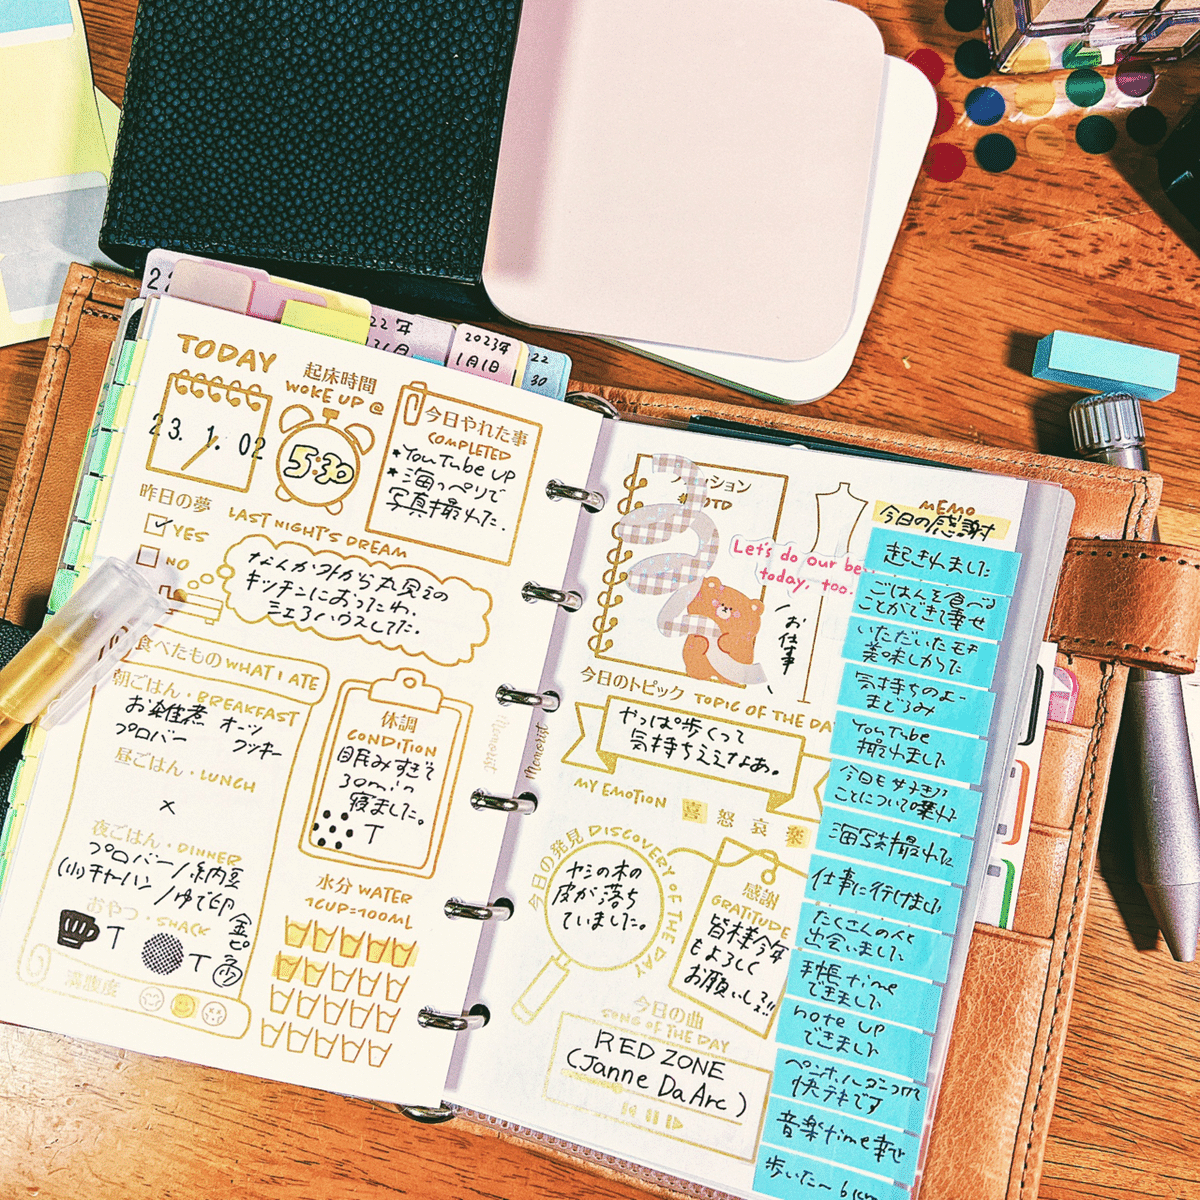 22年
2023年
1月1日
22
30
TODAY
23. 1. 02
起床時間
WOKE UP @
5:30
今日やれた事
COMPLETED
*YouTube UP
*海っぺりで
写真撮れた.
昨日の夢
LAST NIGHT'S DREAM
YES
NO
なんか初から丸見えの
キッチンにおったわ.
シェアハウスしてた.
食べたもの WHAT I ATE
朝ごはん・BREAKFAST
お雑煮 オーツ
プロバー クッキー
昼ごはん・LUNCH
×
夜ごはん・DINNER
プロバー/納豆
(小)チャーハン/ゆで卵
おやつ・SNACK
T
T
満腹度
体調
CONDITION
眠みすぎて
30min
寝ました。
T
水分 WATER
1CUP=100ML
Memorist
Memorist
ファッション
#OOTD
Let's do our be
today, too.
お仕事
今日のトピック TOPIC OF THE DAY
やっぱ歩くって
気持ちええなあ。
MY EMOTION 喜 怒 哀 楽
今日の発見 DISCOVERY OF THE DAY
ヤシの木の
皮が落ち
ていました。
感謝
GRATITUDE
皆様今年
もよろしく
お願いしてます!!
今日の曲
SONG OF THE DAY
RED ZONE
(Janne Da Arc)
MEMO
今日の感謝
起きれました
ごはんを食べる
ことができて幸せ
いただいたモチ
美味しかった
気持ちのよー
まどろみ
YouTube
撮れました
海写真撮れた
仕事に行けました
たくさんの人と
出会いました
手帳time
できました
note UP
できました
快テキです
音楽time幸せ
歩いた〜 6km